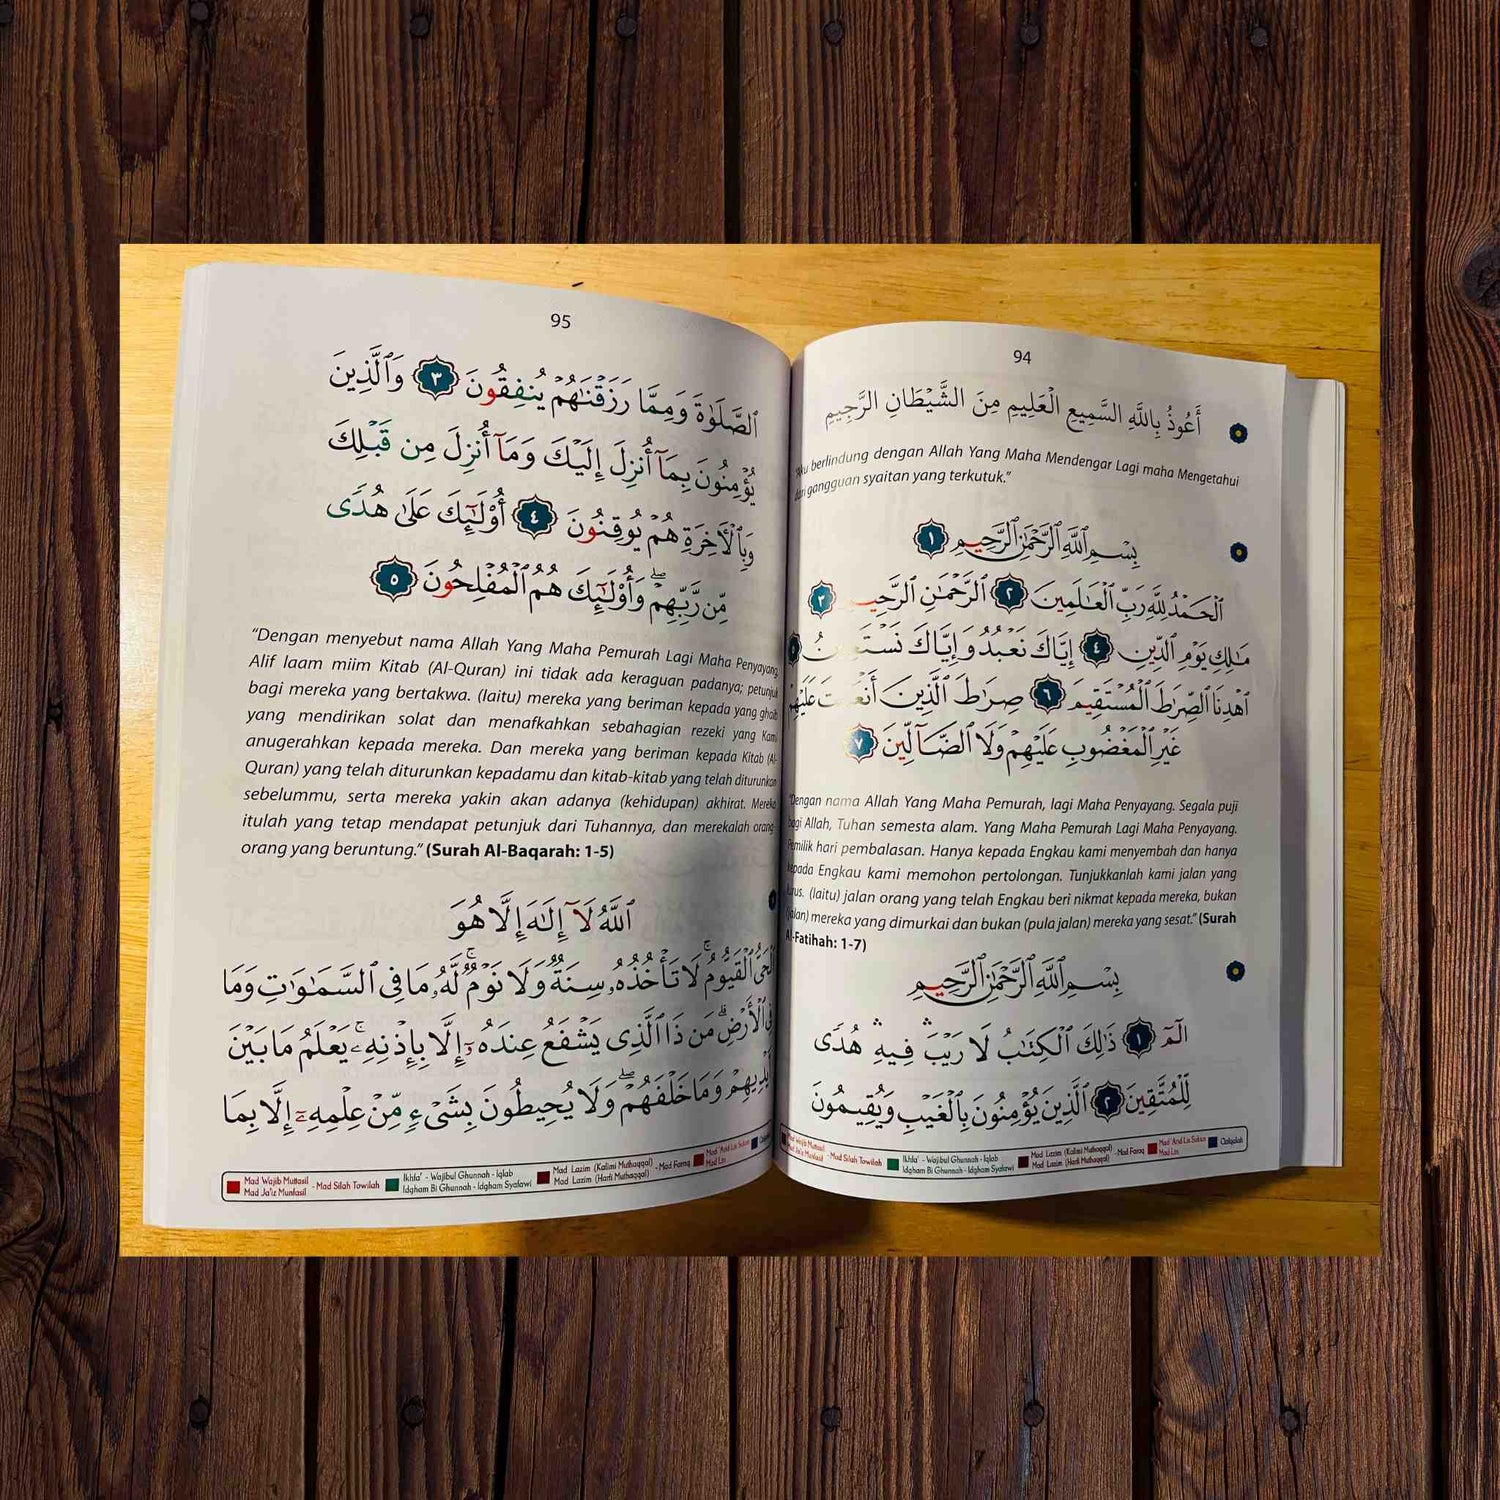 94
أَعُوذُ بِاللَّهِ السَّمِيعِ الْعَلِيمِ مِنَ الشَّيْطَانِ الرَّجِيمِ
"Aku berlindung dengan Allah Yang Maha Mendengar Lagi maha Mengetahui
dari gangguan syaitan yang terkutuk."
بِسْمِ ٱللَّهِ ٱلرَّحْمَٰنِ ٱلرَّحِيمِ ١
ٱلْحَمْدُ لِلَّهِ رَبِّ ٱلْعَٰلَمِينَ ٢ ٱلرَّحْمَٰنِ ٱلرَّحِيمِ ٣
مَٰلِكِ يَوْمِ ٱلدِّينِ ٤ إِيَّاكَ نَعْبُدُ وَإِيَّاكَ نَسْتَعِينُ ٥
ٱهْدِنَا ٱلصِّرَٰطَ ٱلْمُسْتَقِيمَ ٦ صِرَٰطَ ٱلَّذِينَ أَنْعَمْتَ عَلَيْهِمْ
غَيْرِ ٱلْمَغْضُوبِ عَلَيْهِمْ وَلَا ٱلضَّآلِّينَ ٧
"Dengan nama Allah Yang Maha Pemurah, lagi Maha Penyayang. Segala puji
bagi Allah, Tuhan semesta alam. Yang Maha Pemurah Lagi Maha Penyayang.
Pemilik hari pembalasan. Hanya kepada Engkau kami menyembah dan hanya
kepada Engkau kami memohon pertolongan. Tunjukkanlah kami jalan yang
lurus. (Iaitu) jalan orang yang telah Engkau beri nikmat kepada mereka, bukan
(jalan) mereka yang dimurkai dan bukan (pula jalan) mereka yang sesat." (Surah
Al-Fatihah: 1-7)
بِسْمِ ٱللَّهِ ٱلرَّحْمَٰنِ ٱلرَّحِيمِ
الٓمٓ ١ ذَٰلِكَ ٱلْكِتَٰبُ لَا رَيْبَ ۛ فِيهِ ۛ هُدًى
لِّلْمُتَّقِينَ ٢ ٱلَّذِينَ يُؤْمِنُونَ بِٱلْغَيْبِ وَيُقِيمُونَ
Mad Wajib Muttasil Mad Ja'iz Munfasil - Mad Silah Towilah Ikhfa' - Wajibul Ghunnah - Iqlab Idgham Bi Ghunnah - Idgham Syafawi Mad Lazim (Kalimi Muthaqqal) Mad Lazim (Harfi Muthaqqal) - Mad Faraq Mad 'Arid Lis Sukun Mad Lin Qalqalah
95
ٱلصَّلَوٰةَ وَمِمَّا رَزَقْنَٰهُمْ يُنفِقُونَ ٣ وَٱلَّذِينَ
يُؤْمِنُونَ بِمَآ أُنزِلَ إِلَيْكَ وَمَآ أُنزِلَ مِن قَبْلِكَ
وَبِٱلْءَاخِرَةِ هُمْ يُوقِنُونَ ٤ أُو۟لَٰٓئِكَ عَلَىٰ هُدًى
مِّن رَّبِّهِمْ ۖ وَأُو۟لَٰٓئِكَ هُمُ ٱلْمُفْلِحُونَ ٥
"Dengan menyebut nama Allah Yang Maha Pemurah Lagi Maha Penyayang.
Alif laam miim Kitab (Al-Quran) ini tidak ada keraguan padanya; petunjuk
bagi mereka yang bertakwa. (Iaitu) mereka yang beriman kepada yang ghaib
yang mendirikan solat dan menafkahkan sebahagian rezeki yang Kami
anugerahkan kepada mereka. Dan mereka yang beriman kepada Kitab (Al-
Quran) yang telah diturunkan kepadamu dan kitab-kitab yang telah diturunkan
sebelummu, serta mereka yakin akan adanya (kehidupan) akhirat. Mereka
itulah yang tetap mendapat petunjuk dari Tuhannya, dan merekalah orang-
orang yang beruntung." (Surah Al-Baqarah: 1-5)
ٱللَّهُ لَآ إِلَٰهَ إِلَّا هُوَ
ٱلْحَىُّ ٱلْقَيُّومُ ۚ لَا تَأْخُذُهُۥ سِنَةٌ وَلَا نَوْمٌ ۚ لَّهُۥ مَا فِى ٱلسَّمَٰوَٰتِ وَمَا
فِى ٱلْأَرْضِ ۗ مَن ذَا ٱلَّذِى يَشْفَعُ عِندَهُۥٓ إِلَّا بِإِذْنِهِۦ ۚ يَعْلَمُ مَا بَيْنَ
أَيْدِيهِمْ وَمَا خَلْفَهُمْ ۖ وَلَا يُحِيطُونَ بِشَىْءٍ مِّنْ عِلْمِهِۦٓ إِلَّا بِمَا
Mad Wajib Muttasil Mad Ja'iz Munfasil - Mad Silah Towilah Ikhfa' - Wajibul Ghunnah - Iqlab Idgham Bi Ghunnah - Idgham Syafawi Mad Lazim (Kalimi Muthaqqal) Mad Lazim (Harfi Muthaqqal) - Mad Faraq Mad 'Arid Lis Sukun Mad Lin